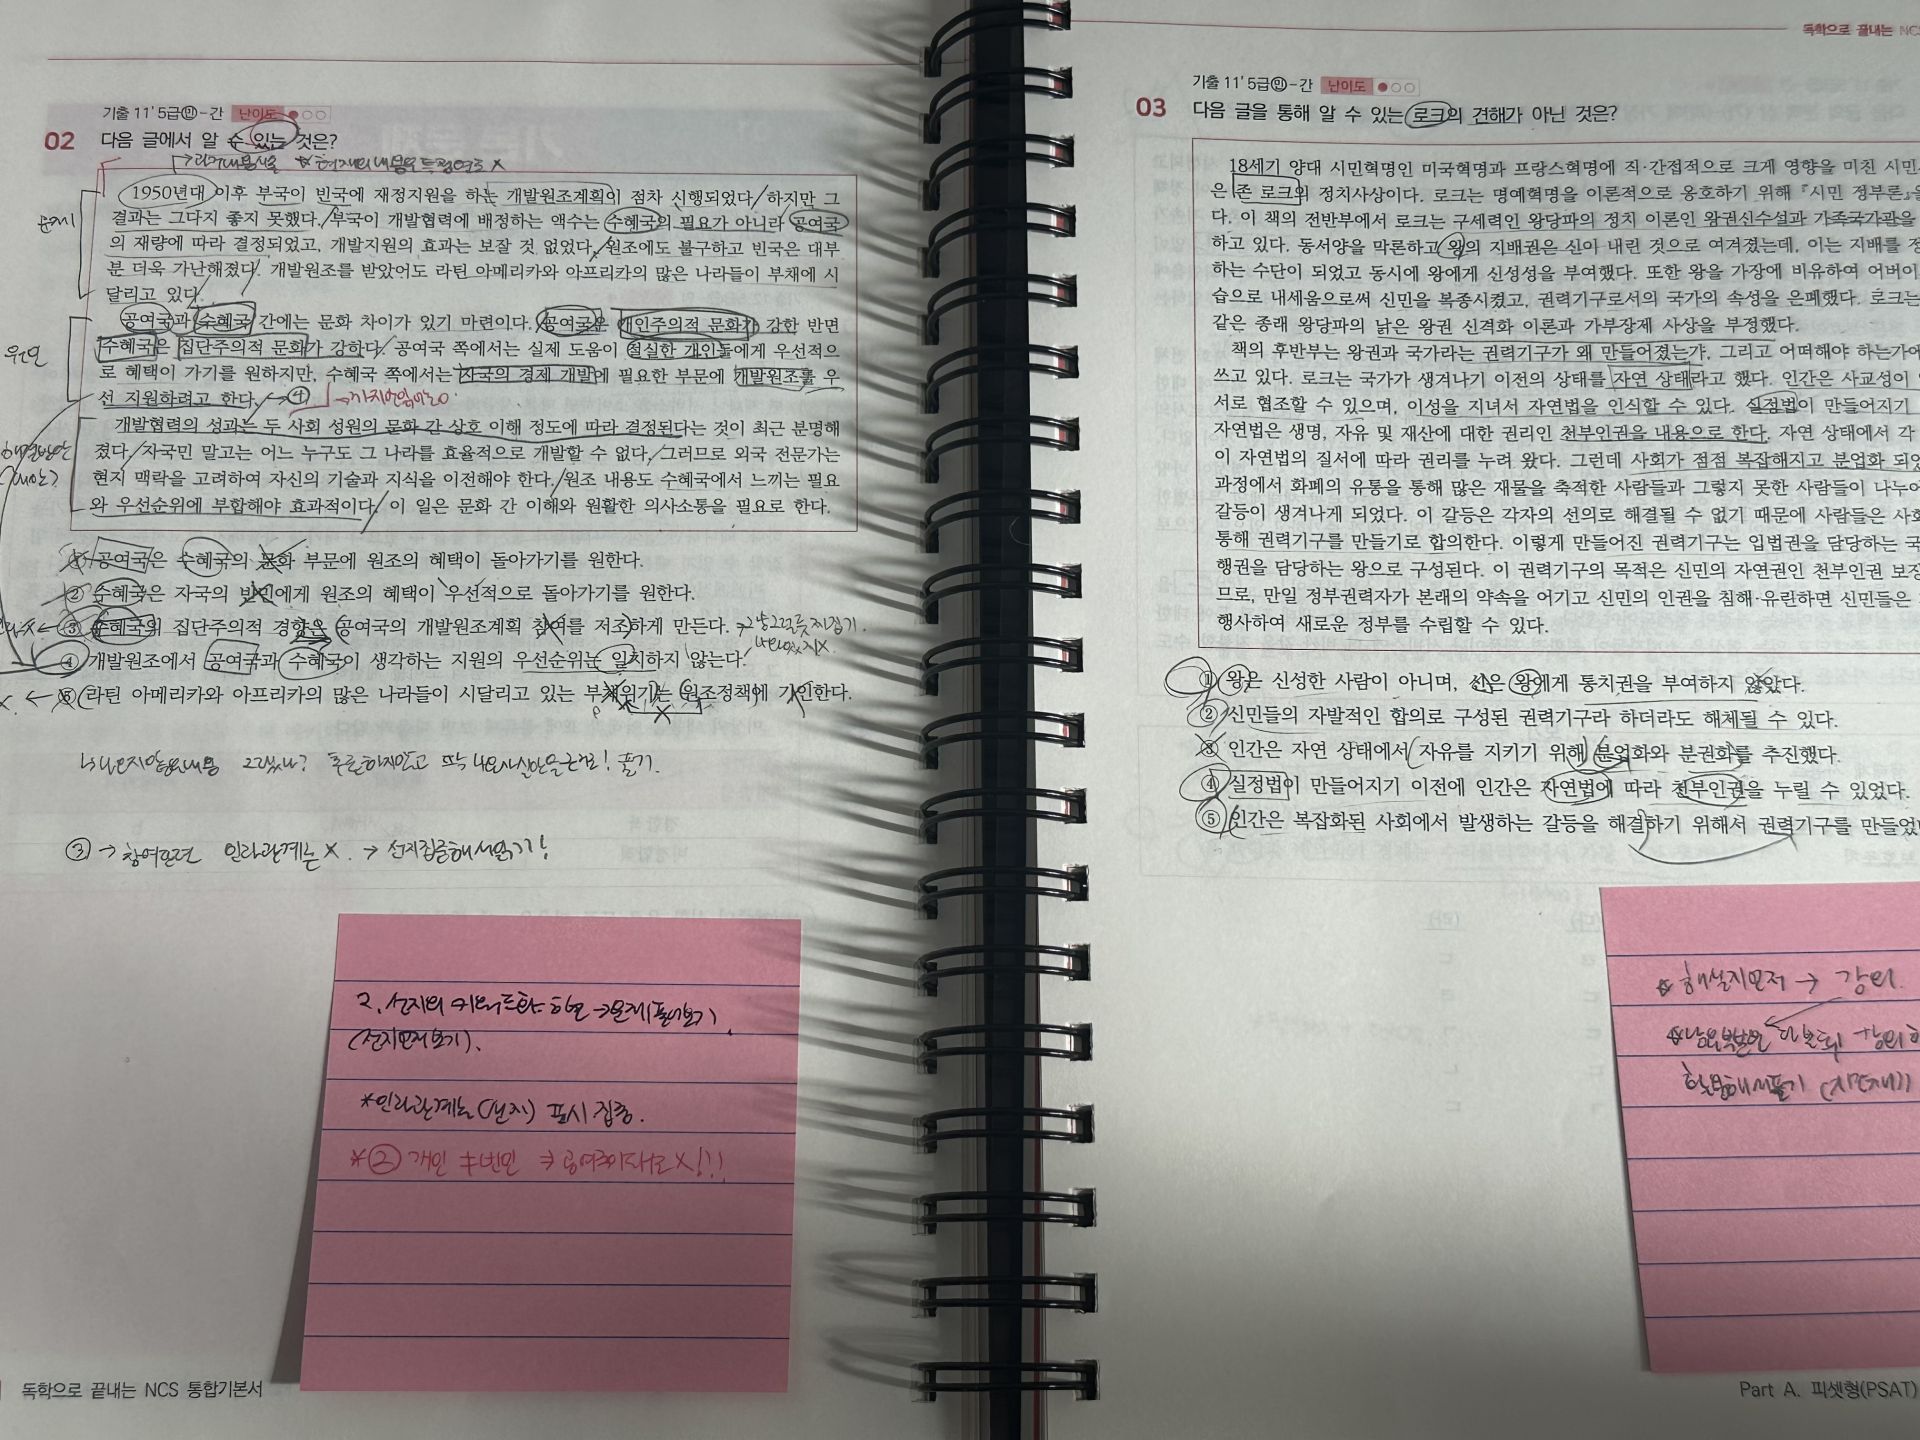 기출 11' 5급㉫-간 난이도 ●○○
02 다음 글에서 알 수 있는 것은?
1950년대 이후 부국이 빈국에 재정지원을 하는 개발원조계획이 점차 시행되었다. 하지만 그
결과는 그다지 좋지 못했다. 부국이 개발협력에 배정하는 액수는 수혜국의 필요가 아니라 공여국
의 재량에 따라 결정되었고, 개발지원의 효과는 보잘 것 없었다. 원조에도 불구하고 빈국은 대부
분 더욱 가난해졌다. 개발원조를 받았어도 라틴 아메리카와 아프리카의 많은 나라들이 부채에 시
달리고 있다.
공여국과 수혜국 간에는 문화 차이가 있기 마련이다. 공여국은 개인주의적 문화가 강한 반면
수혜국은 집단주의적 문화가 강하다. 공여국 쪽에서는 실제 도움이 절실한 개인들에게 우선적으
로 혜택이 가기를 원하지만, 수혜국 쪽에서는 자국의 경제 개발에 필요한 부문에 개발원조를 우
선 지원하려고 한다. → ④
개발협력의 성과는 두 사회 성원의 문화 간 상호 이해 정도에 따라 결정된다는 것이 최근 분명해
졌다. 자국민 말고는 어느 누구도 그 나라를 효율적으로 개발할 수 없다. 그러므로 외국 전문가는
현지 맥락을 고려하여 자신의 기술과 지식을 이전해야 한다. 원조 내용도 수혜국에서 느끼는 필요
와 우선순위에 부합해야 효과적이다. 이 일은 문화 간 이해와 원활한 의사소통을 필요로 한다.
① 공여국은 수혜국의 문화 부문에 원조의 혜택이 돌아가기를 원한다.
② 수혜국은 자국의 빈민에게 원조의 혜택이 우선적으로 돌아가기를 원한다.
③ 수혜국의 집단주의적 경향은 공여국의 개발원조계획 참여를 저조하게 만든다.
④ 개발원조에서 공여국과 수혜국이 생각하는 지원의 우선순위는 일치하지 않는다.
⑤ 라틴 아메리카와 아프리카의 많은 나라들이 시달리고 있는 부채위기는 원조정책에 기인한다.
③ → 참여관련 인과관계는 X. → 선지집중해서읽기!
2. 선지의 키워드화 하면 → 문제풀어보기.
(선지먼저보기).
*인과관계는 (선지) 표시 집중.
*② 개인 ≠ 빈민
독학으로 끝내는 NCS 통합기본서
독학으로 끝내는 NCS
기출 11' 5급㉫-간 난이도 ●○○
03 다음 글을 통해 알 수 있는 로크의 견해가 아닌 것은?
18세기 양대 시민혁명인 미국혁명과 프랑스혁명에 직·간접적으로 크게 영향을 미친 시민
은 존 로크의 정치사상이다. 로크는 명예혁명을 이론적으로 옹호하기 위해 『시민 정부론』을
다. 이 책의 전반부에서 로크는 구세력인 왕당파의 정치 이론인 왕권신수설과 가족국가관을
하고 있다. 동서양을 막론하고 왕의 지배권은 신이 내린 것으로 여겨졌는데, 이는 지배를 정
하는 수단이 되었고 동시에 왕에게 신성성을 부여했다. 또한 왕을 가장에 비유하여 어버이
습으로 내세움으로써 신민을 복종시켰고, 권력기구로서의 국가의 속성을 은폐했다. 로크는
같은 종래 왕당파의 낡은 왕권 신격화 이론과 가부장제 사상을 부정했다.
책의 후반부는 왕권과 국가라는 권력기구가 왜 만들어졌는가, 그리고 어떠해야 하는가에
쓰고 있다. 로크는 국가가 생겨나기 이전의 상태를 자연 상태라고 했다. 인간은 사교성이
서로 협조할 수 있으며, 이성을 지녀서 자연법을 인식할 수 있다. 실정법이 만들어지기
자연법은 생명, 자유 및 재산에 대한 권리인 천부인권을 내용으로 한다. 자연 상태에서 각
이 자연법의 질서에 따라 권리를 누려 왔다. 그런데 사회가 점점 복잡해지고 분업화 되었
과정에서 화폐의 유통을 통해 많은 재물을 축적한 사람들과 그렇지 못한 사람들이 나누어
갈등이 생겨나게 되었다. 이 갈등은 각자의 선의로 해결될 수 없기 때문에 사람들은 사회
통해 권력기구를 만들기로 합의한다. 이렇게 만들어진 권력기구는 입법권을 담당하는 국
행권을 담당하는 왕으로 구성된다. 이 권력기구의 목적은 신민의 자연권인 천부인권 보장
므로, 만일 정부권력자가 본래의 약속을 어기고 신민의 인권을 침해·유린하면 신민들은
행사하여 새로운 정부를 수립할 수 있다.
① 왕은 신성한 사람이 아니며, 신은 왕에게 통치권을 부여하지 않았다.
② 신민들의 자발적인 합의로 구성된 권력기구라 하더라도 해체될 수 있다.
③ 인간은 자연 상태에서 자유를 지키기 위해 분업화와 분권화를 추진했다.
④ 실정법이 만들어지기 이전에 인간은 자연법에 따라 천부인권을 누릴 수 있었다.
⑤ 인간은 복잡화된 사회에서 발생하는 갈등을 해결하기 위해서 권력기구를 만들었
* 해설지먼저 → 강의.
Part A. 피셋형(PSAT)